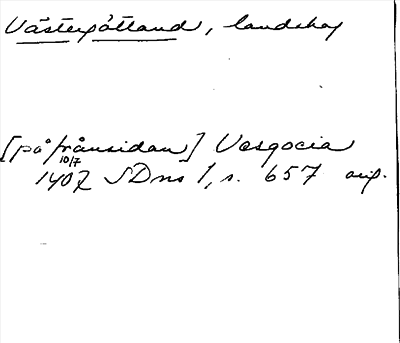 Västergötland, landskap
[på frånsidan] Vesgocia
10/7
1407 SDns 1, s. 657 orig.